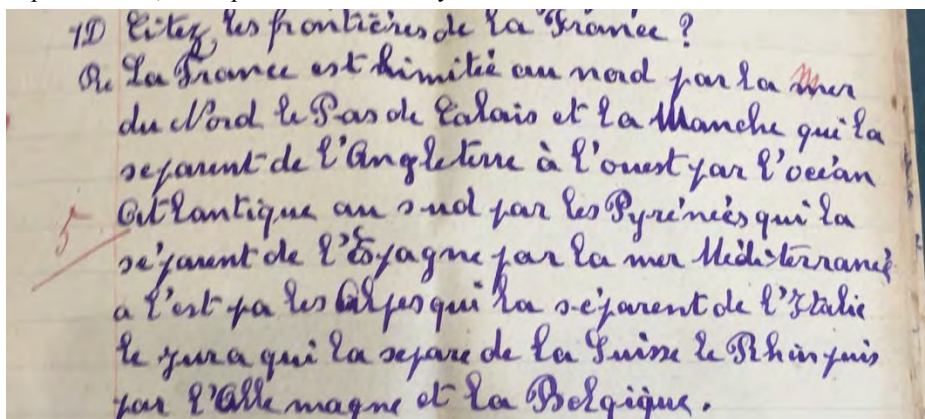 1D Citez les frontières de la France ?
R. La France est limitée au nord par la mer
du Nord le Pas de Calais et la Manche qui la
separent de l'Angleterre à l'ouest par l'océan
Atlantique au sud par les Pyrénées qui la
5
séparent de l'Espagne par la mer Méditerranée
a l'est pa les Alpes qui la séparent de l'Italie
le jura qui la separe de la Suisse le Rhin puis
par l'Allemagne et la Belgique.